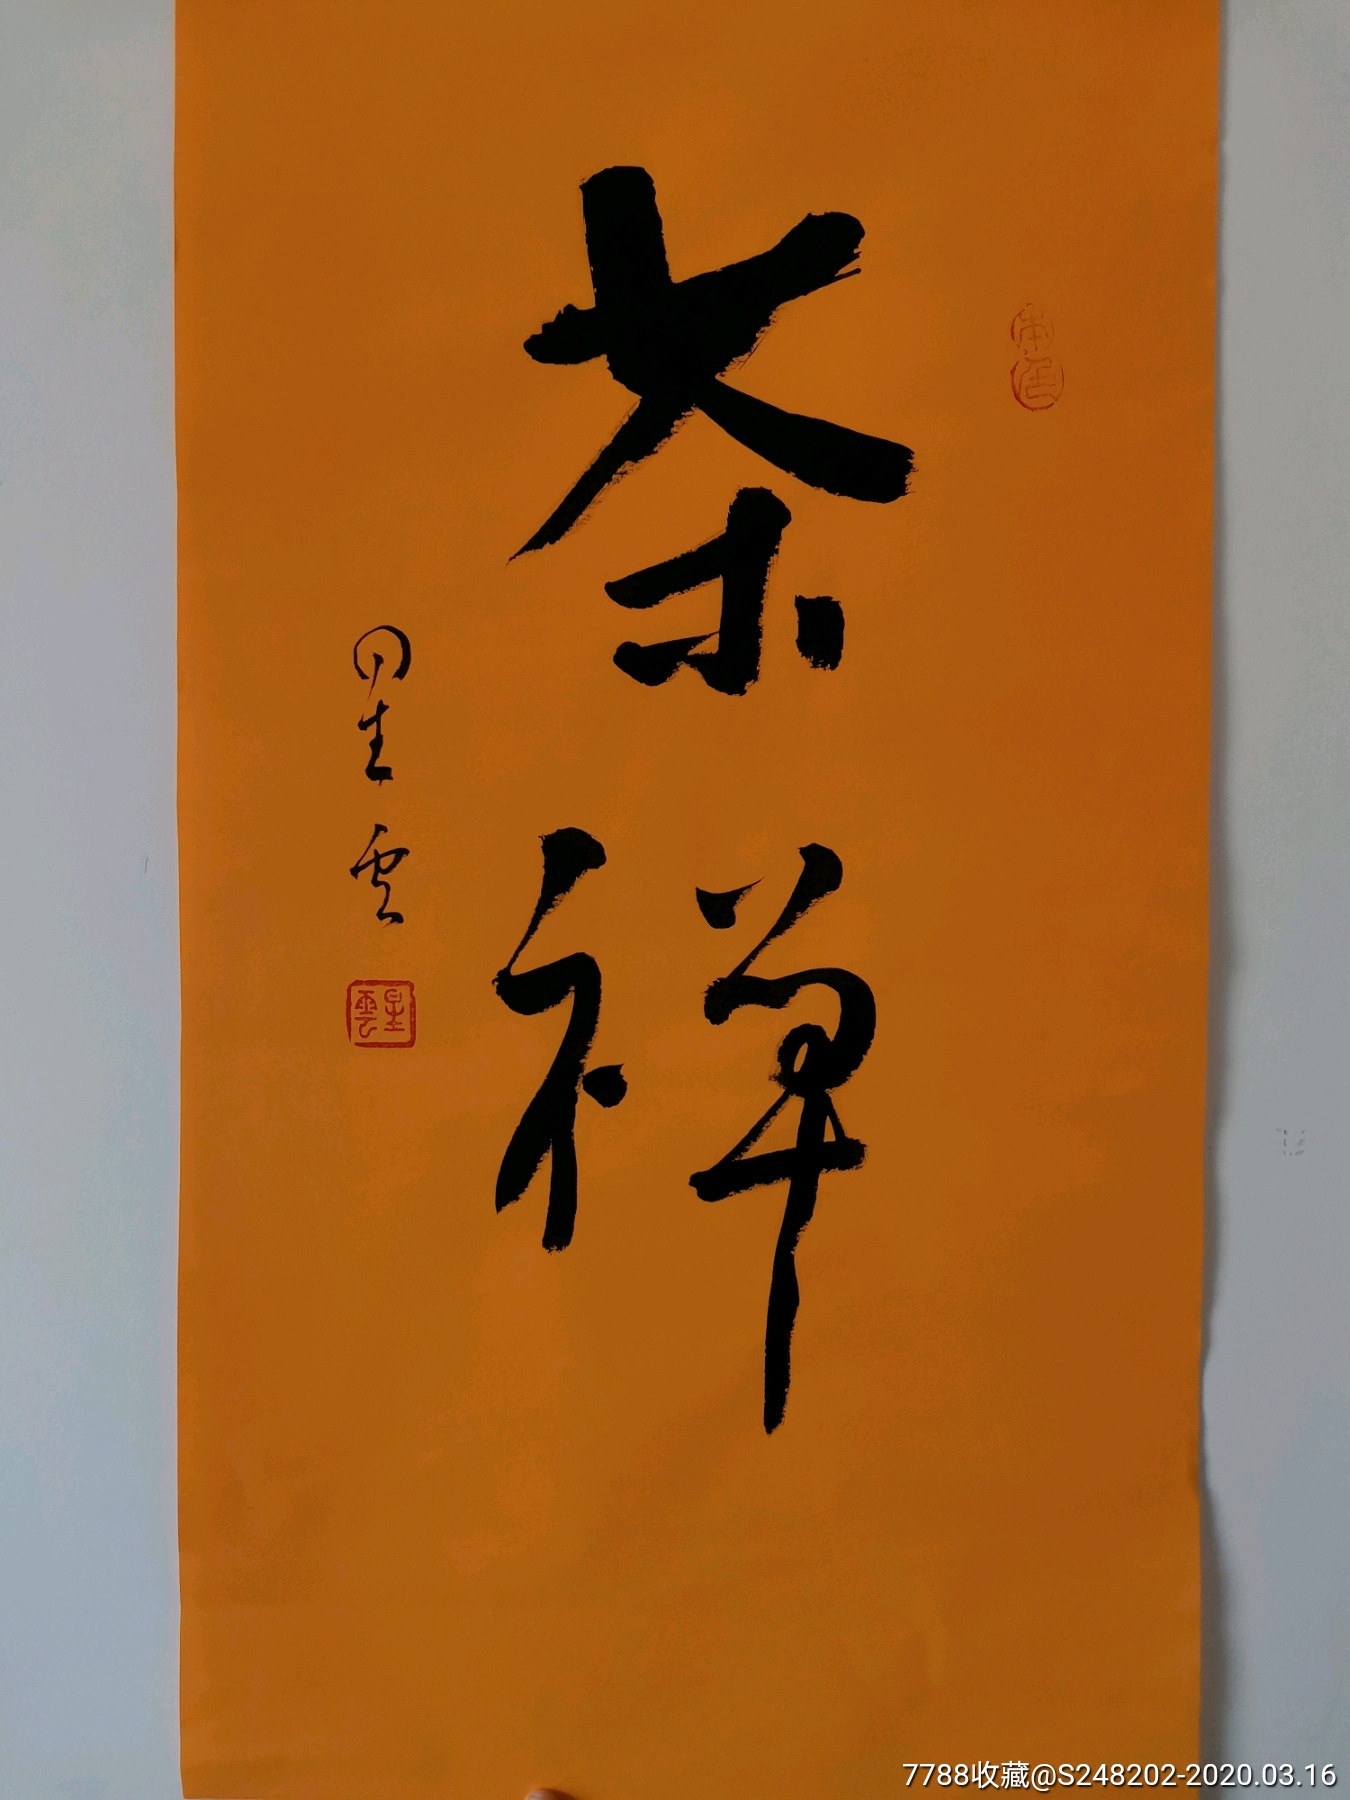 本色
茶禅
星云
星雲
7788收藏@S248202-2020.03.16